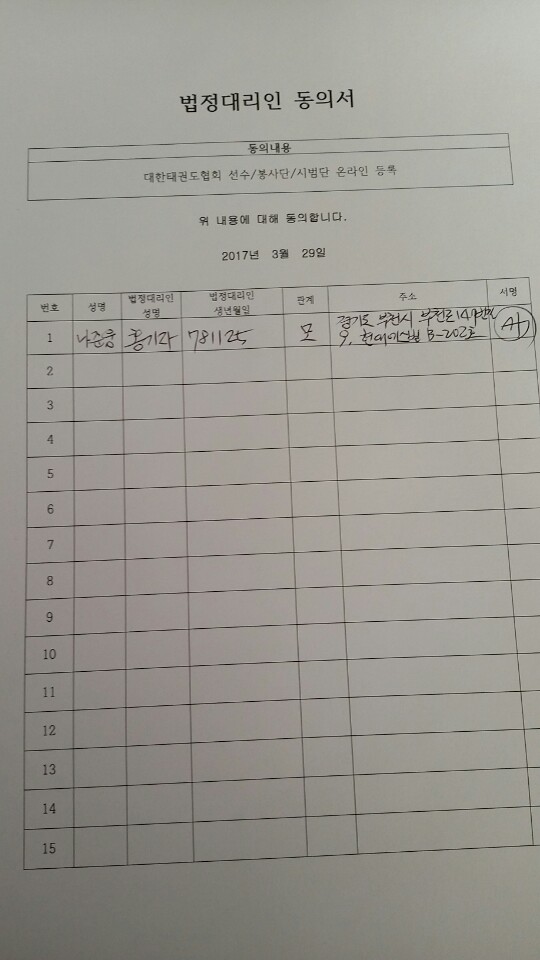 법정대리인 동의서
동의내용
대한태권도협회 선수/봉사단/시범단 온라인 등록
위 내용에 대해 동의합니다.
2017년 3월 29일
번호 성명 법정대리인 성명 법정대리인 생년월일 관계 주소 서명
1 781125 모 경기도 부천시 부천로
9, B-202호
2
3
4
5
6
7
8
9
10
11
12
13
14
15